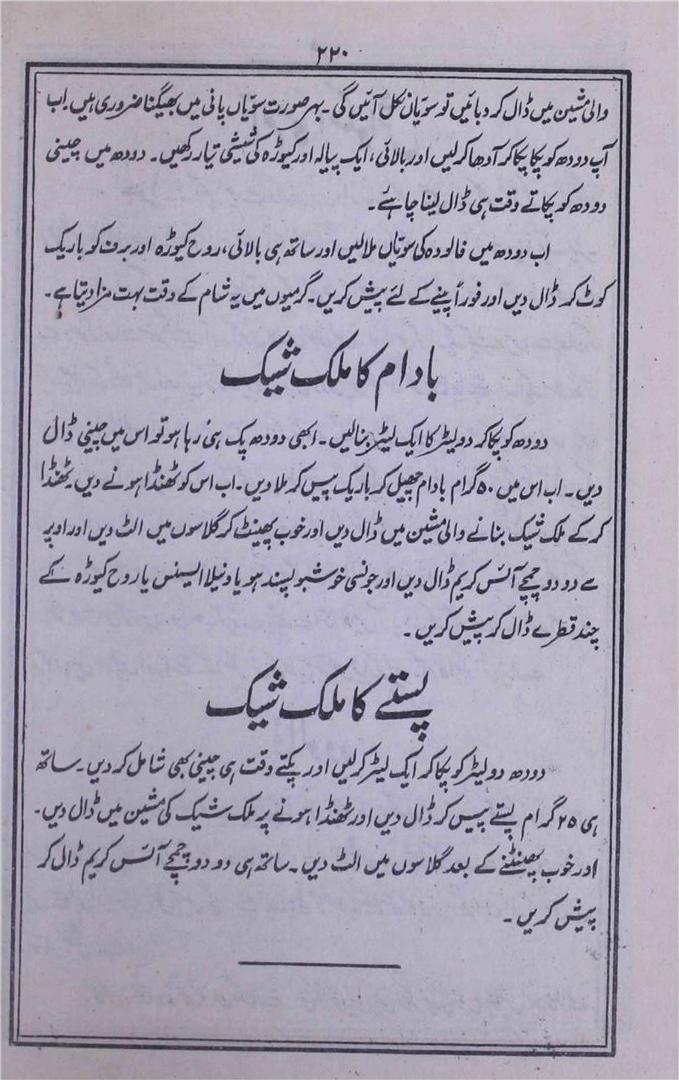 ۲۲۰
والی مشین میں ڈال کر دبائیں تو سویاں نکل آئیں گی۔ بہر صورت سویاں پانی میں بھیگنا ضروری ہیں۔ اب
آپ دودھ کو پکا پکا کر آدھا کر لیں اور بالائی، ایک پیالہ اور کیوڑہ کی شیشی تیار رکھیں۔ دودھ میں چینی
دودھ کو پکاتے وقت ہی ڈال لینا چاہئے۔
اب دودھ میں فالودہ کی سویاں ملا لیں اور ساتھ ہی بالائی، روح کیوڑہ اور برف کو باریک
کوٹ کر ڈال دیں اور فوراً پینے کے لئے پیش کریں۔ گرمیوں میں یہ شام کے وقت بہت مزا دیتا ہے۔
بادام کا ملک شیک
دودھ کو پکا کر دو لیٹر کا ایک لیٹر بنالیں۔ ابھی دودھ پک ہی رہا ہو تو اس میں چینی ڈال
دیں۔ اب اس میں ۵۰ گرام بادام چھیل کر باریک پیس کر ملا دیں۔ اب اس کو ٹھنڈا ہونے دیں۔ ٹھنڈا
کر کے ملک شیک بنانے والی مشین میں ڈال دیں اور خوب پھینٹ کر گلاسوں میں الٹ دیں اور اوپر
سے دو دو چمچے آئس کریم ڈال دیں اور جونسی خوشبو پسند ہو یا ونیلا ایسنس یا روح کیوڑہ کے
چند قطرے ڈال کر پیش کریں۔
پستے کا ملک شیک
دودھ دو لیٹر کو پکا کر ایک لیٹر کرلیں اور پکتے وقت ہی چینی بھی شامل کر دیں۔ ساتھ
ہی ۲۵ گرام پستے پیس کر ڈال دیں اور ٹھنڈا ہونے پر ملک شیک کی مشین میں ڈال دیں۔
اور خوب پھینٹنے کے بعد گلاسوں میں الٹ دیں۔ ساتھ ہی دو دو چمچے آئس کریم ڈال کر
پیش کریں۔